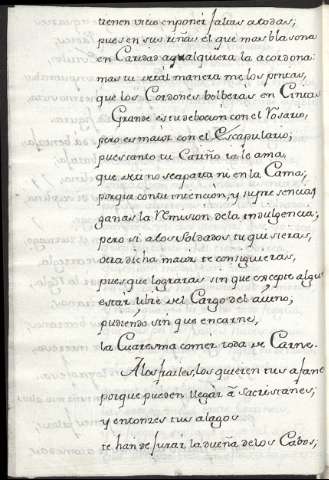 tienen vicio en poner faltas a todas;
pues en sus rinas el que mas blasona
en Caridad a qualquiera la acordona:
mas tu de tal manera me los pintas,
que los Cordones bolberas en Cintas
Grande es tu debocion con el Rosario,
pero es maior con el Escapulario;
pues tanto tu Cariño ta le ama,
que de ti no se aparta ni en la Cama;
porqᵉ a con tu intencion, y su presencia
ganas la Remision de la indulgencia;
pero si a los Soldados tu quisieras,
otra dicha maior te consiguieras,
pues que lograras sin que excepte alguno
estar libre del Cargo del aiuno;
pudiendo sin que encarne,
la Cuaresma comer toda de Carne.
A los frailes, los quieren tus afanes
porque pueden llegar a sacristanes;
y entonzes tus alagos
te han de jurar la dueña de los Cabos;